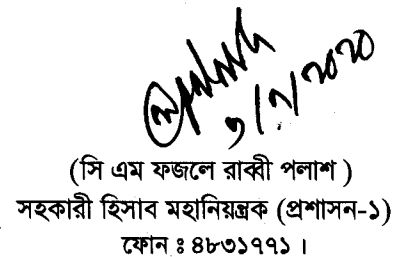 ৩/৭/২০২০
(সি এম ফজলে রাব্বী পলাশ )
সহকারী হিসাব মহানিয়ন্ত্রক (প্রশাসন-১)
ফোন ঃ ৪৮৩১৭৭১ ।